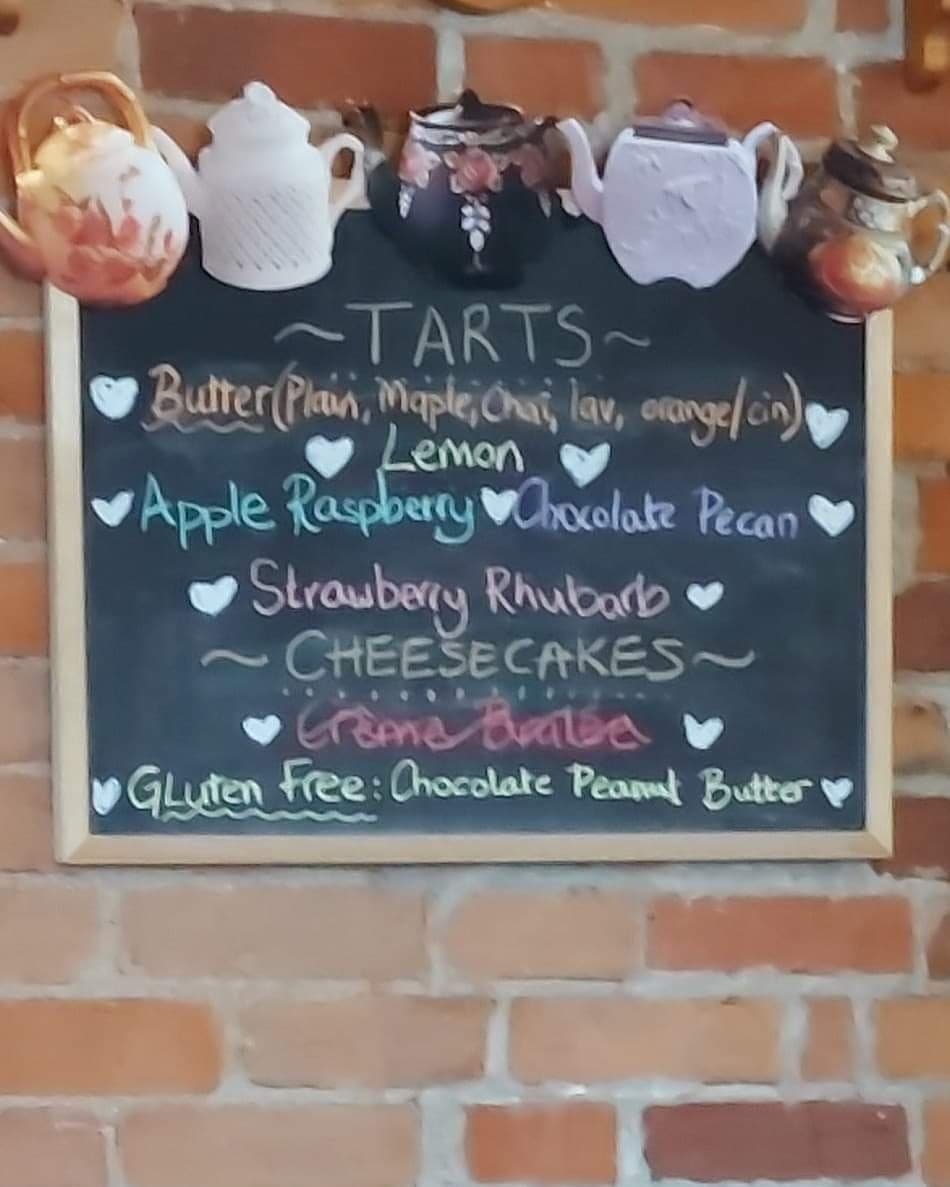 ~TARTS~
Butter (Plain, Maple, Chai, lav, orange/cin)
Lemon
Apple Raspberry Chocolate Pecan
Strawberry Rhubarb
~CHEESECAKES~
Crème Brulée
GLuten Free: Chocolate Peanut Butter